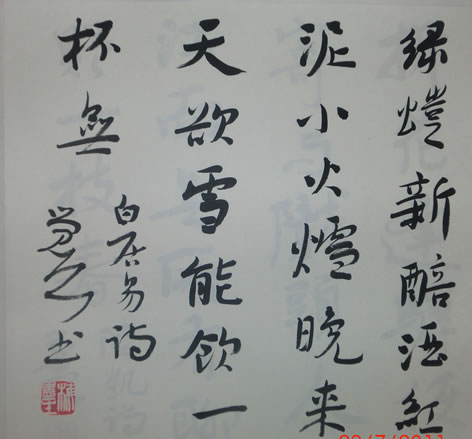 绿螘新醅酒紅
泥小火爐晚来
天欲雪能飲一
杯無
白居易诗
书